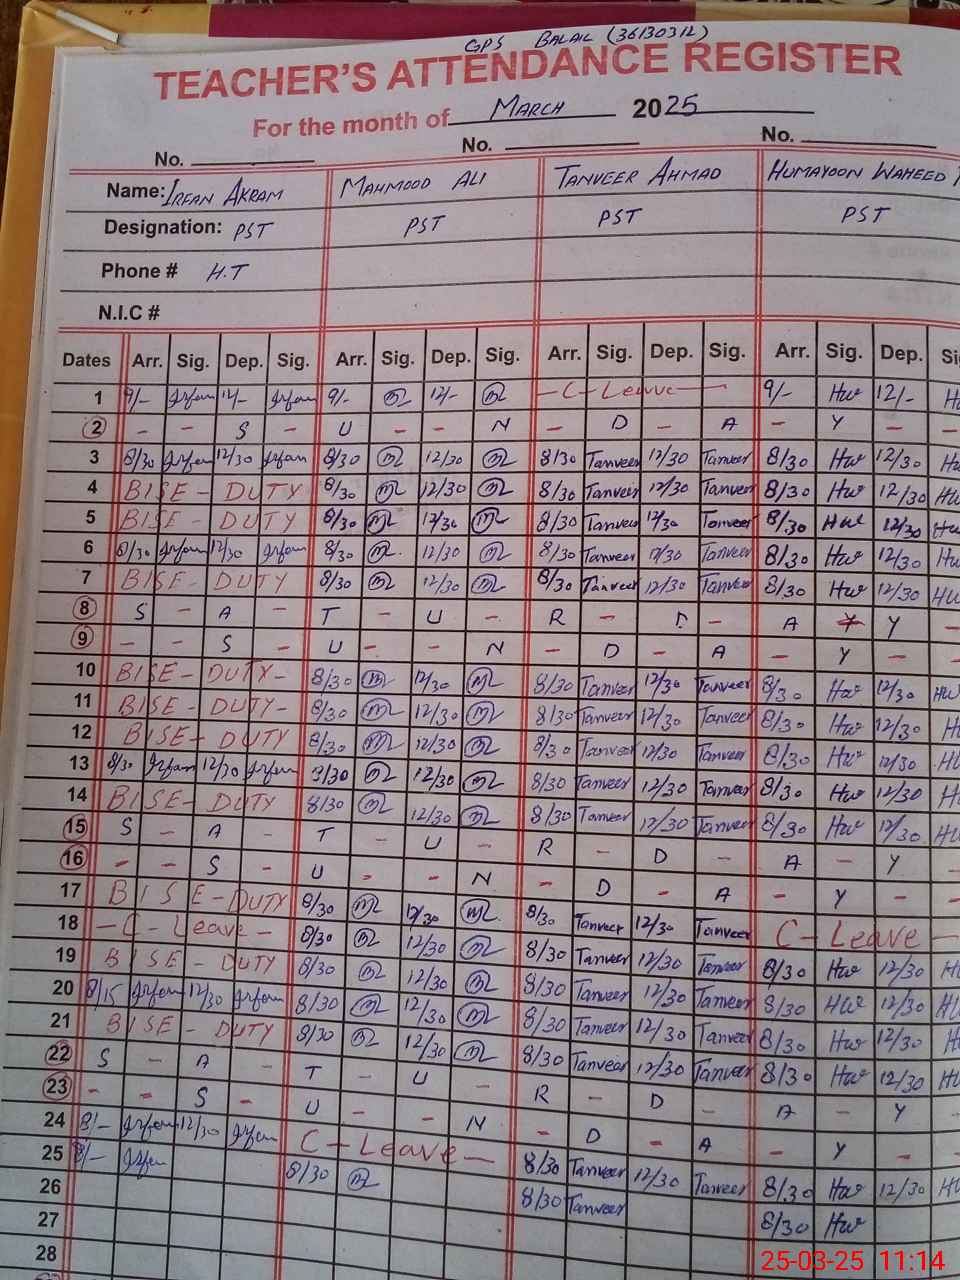 GPS BALAIL (36130312)
TEACHER'S ATTENDANCE REGISTER
For the month of MARCH 2025
No. No. No.
Name: IRFAN AKRAM MAHMOOD ALI TANVEER AHMAD HUMAYOON WAHEED
Designation: PST PST PST PST
Phone # H.T
N.I.C #
Dates Arr. Sig. Dep. Sig. Arr. Sig. Dep. Sig. Arr. Sig. Dep. Sig. Arr. Sig. Dep. Si
1 9/- Irfan 12/- Irfan 9/- 12/- - C - Leave - 9/- Hw 12/- H
2 - - S - U - - N - D - A - Y - -
3 8/30 Irfan 12/30 Irfan 8/30 12/30 8/30 Tanveer 12/30 Tanveer 8/30 Hw 12/30 H
4 BISE - DUTY 8/30 12/30 8/30 Tanveer 12/30 Tanveer 8/30 Hw 12/30 Hw
5 BISE - DUTY 8/30 12/30 8/30 Tanveer 12/30 Tanveer 8/30 Hw 12/30 Hw
6 8/30 Irfan 12/30 Irfan 8/30 12/30 8/30 Tanveer 12/30 Tanveer 8/30 Hw 12/30 Hw
7 BISE - DUTY 8/30 12/30 8/30 Tanveer 12/30 Tanveer 8/30 Hw 12/30 HW
8 S - A - T - U - R - D - A Y Y -
9 - - S - U - - N - D - A - Y - -
10 BISE - DUTY - 8/30 12/30 8/30 Tanveer 12/30 Tanveer 8/30 Hw 12/30 HW
11 BISE - DUTY - 8/30 12/30 8/30 Tanveer 12/30 Tanveer 8/30 Hw 12/30 H
12 BISE - DUTY 8/30 12/30 8/30 Tanveer 12/30 Tanveer 8/30 Hw 12/30 H
13 8/30 Irfan 12/30 Irfan 8/30 12/30 8/30 Tanveer 12/30 Tanveer 8/30 Hw 12/30 H
14 BISE - DUTY 8/30 12/30 8/30 Tanveer 12/30 Tanveer 8/30 Hw 12/30 HW
15 S - A - T - U - R - D - A - Y -
16 - - S - U - - N - D - A - Y - -
17 BISE - DUTY 8/30 12/30 8/30 Tanveer 12/30 Tanveer C - Leave -
18 - C - Leave - 8/30 12/30 8/30 Tanveer 12/30 Tanveer 8/30 Hw 12/30 H
19 BISE - DUTY 8/30 12/30 8/30 Tanveer 12/30 Tanveer 8/30 HW 12/30 HW
20 8/15 Irfan 12/30 Irfan 8/30 12/30 8/30 Tanveer 12/30 Tanveer 8/30 Hw 12/30 H
21 BISE - DUTY 8/30 12/30 8/30 Tanveer 12/30 Tanveer 8/30 Hw 12/30 H
22 S - A - T - U - R - D - A - Y -
23 - - S - U - - N - D - A - Y - -
24 8/- Irfan 12/30 Irfan C - Leave - 8/30 Tanveer 12/30 Tanveer 8/30 Hw 12/30 H
25 8/- Irfan 8/30 8/30 Tanveer 8/30 Hw
26
27
28
25-03-25 11:14